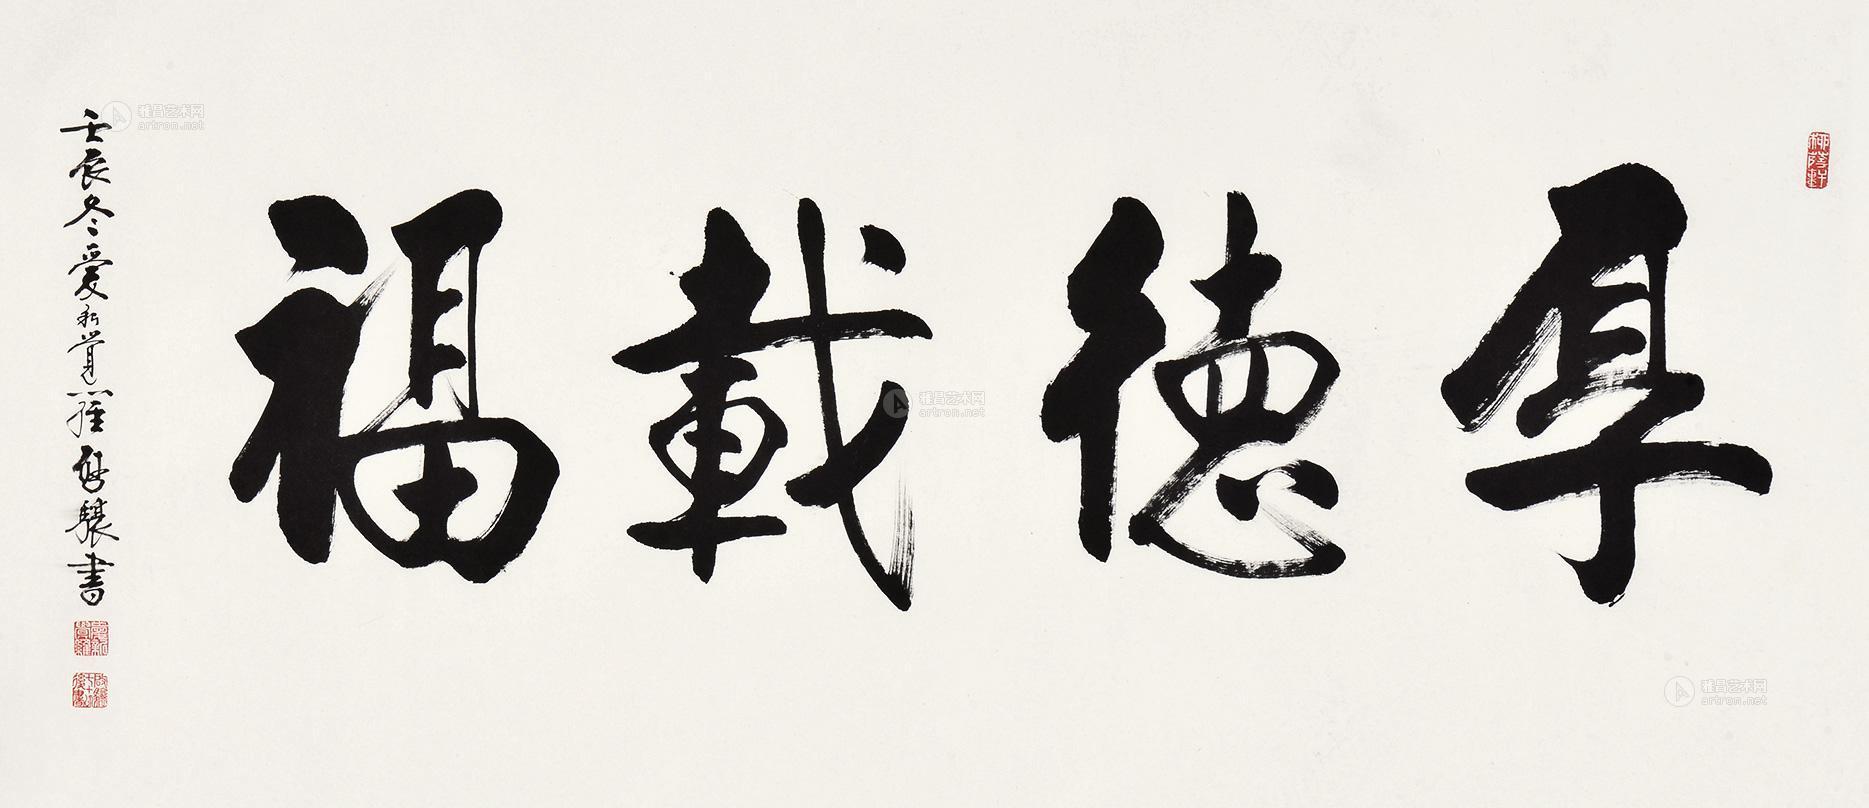 厚德載福
壬辰冬爱新觉罗启骧書
雅昌艺术网
artron.net
雅昌艺术网
artron.net
雅昌艺术网
artron.net